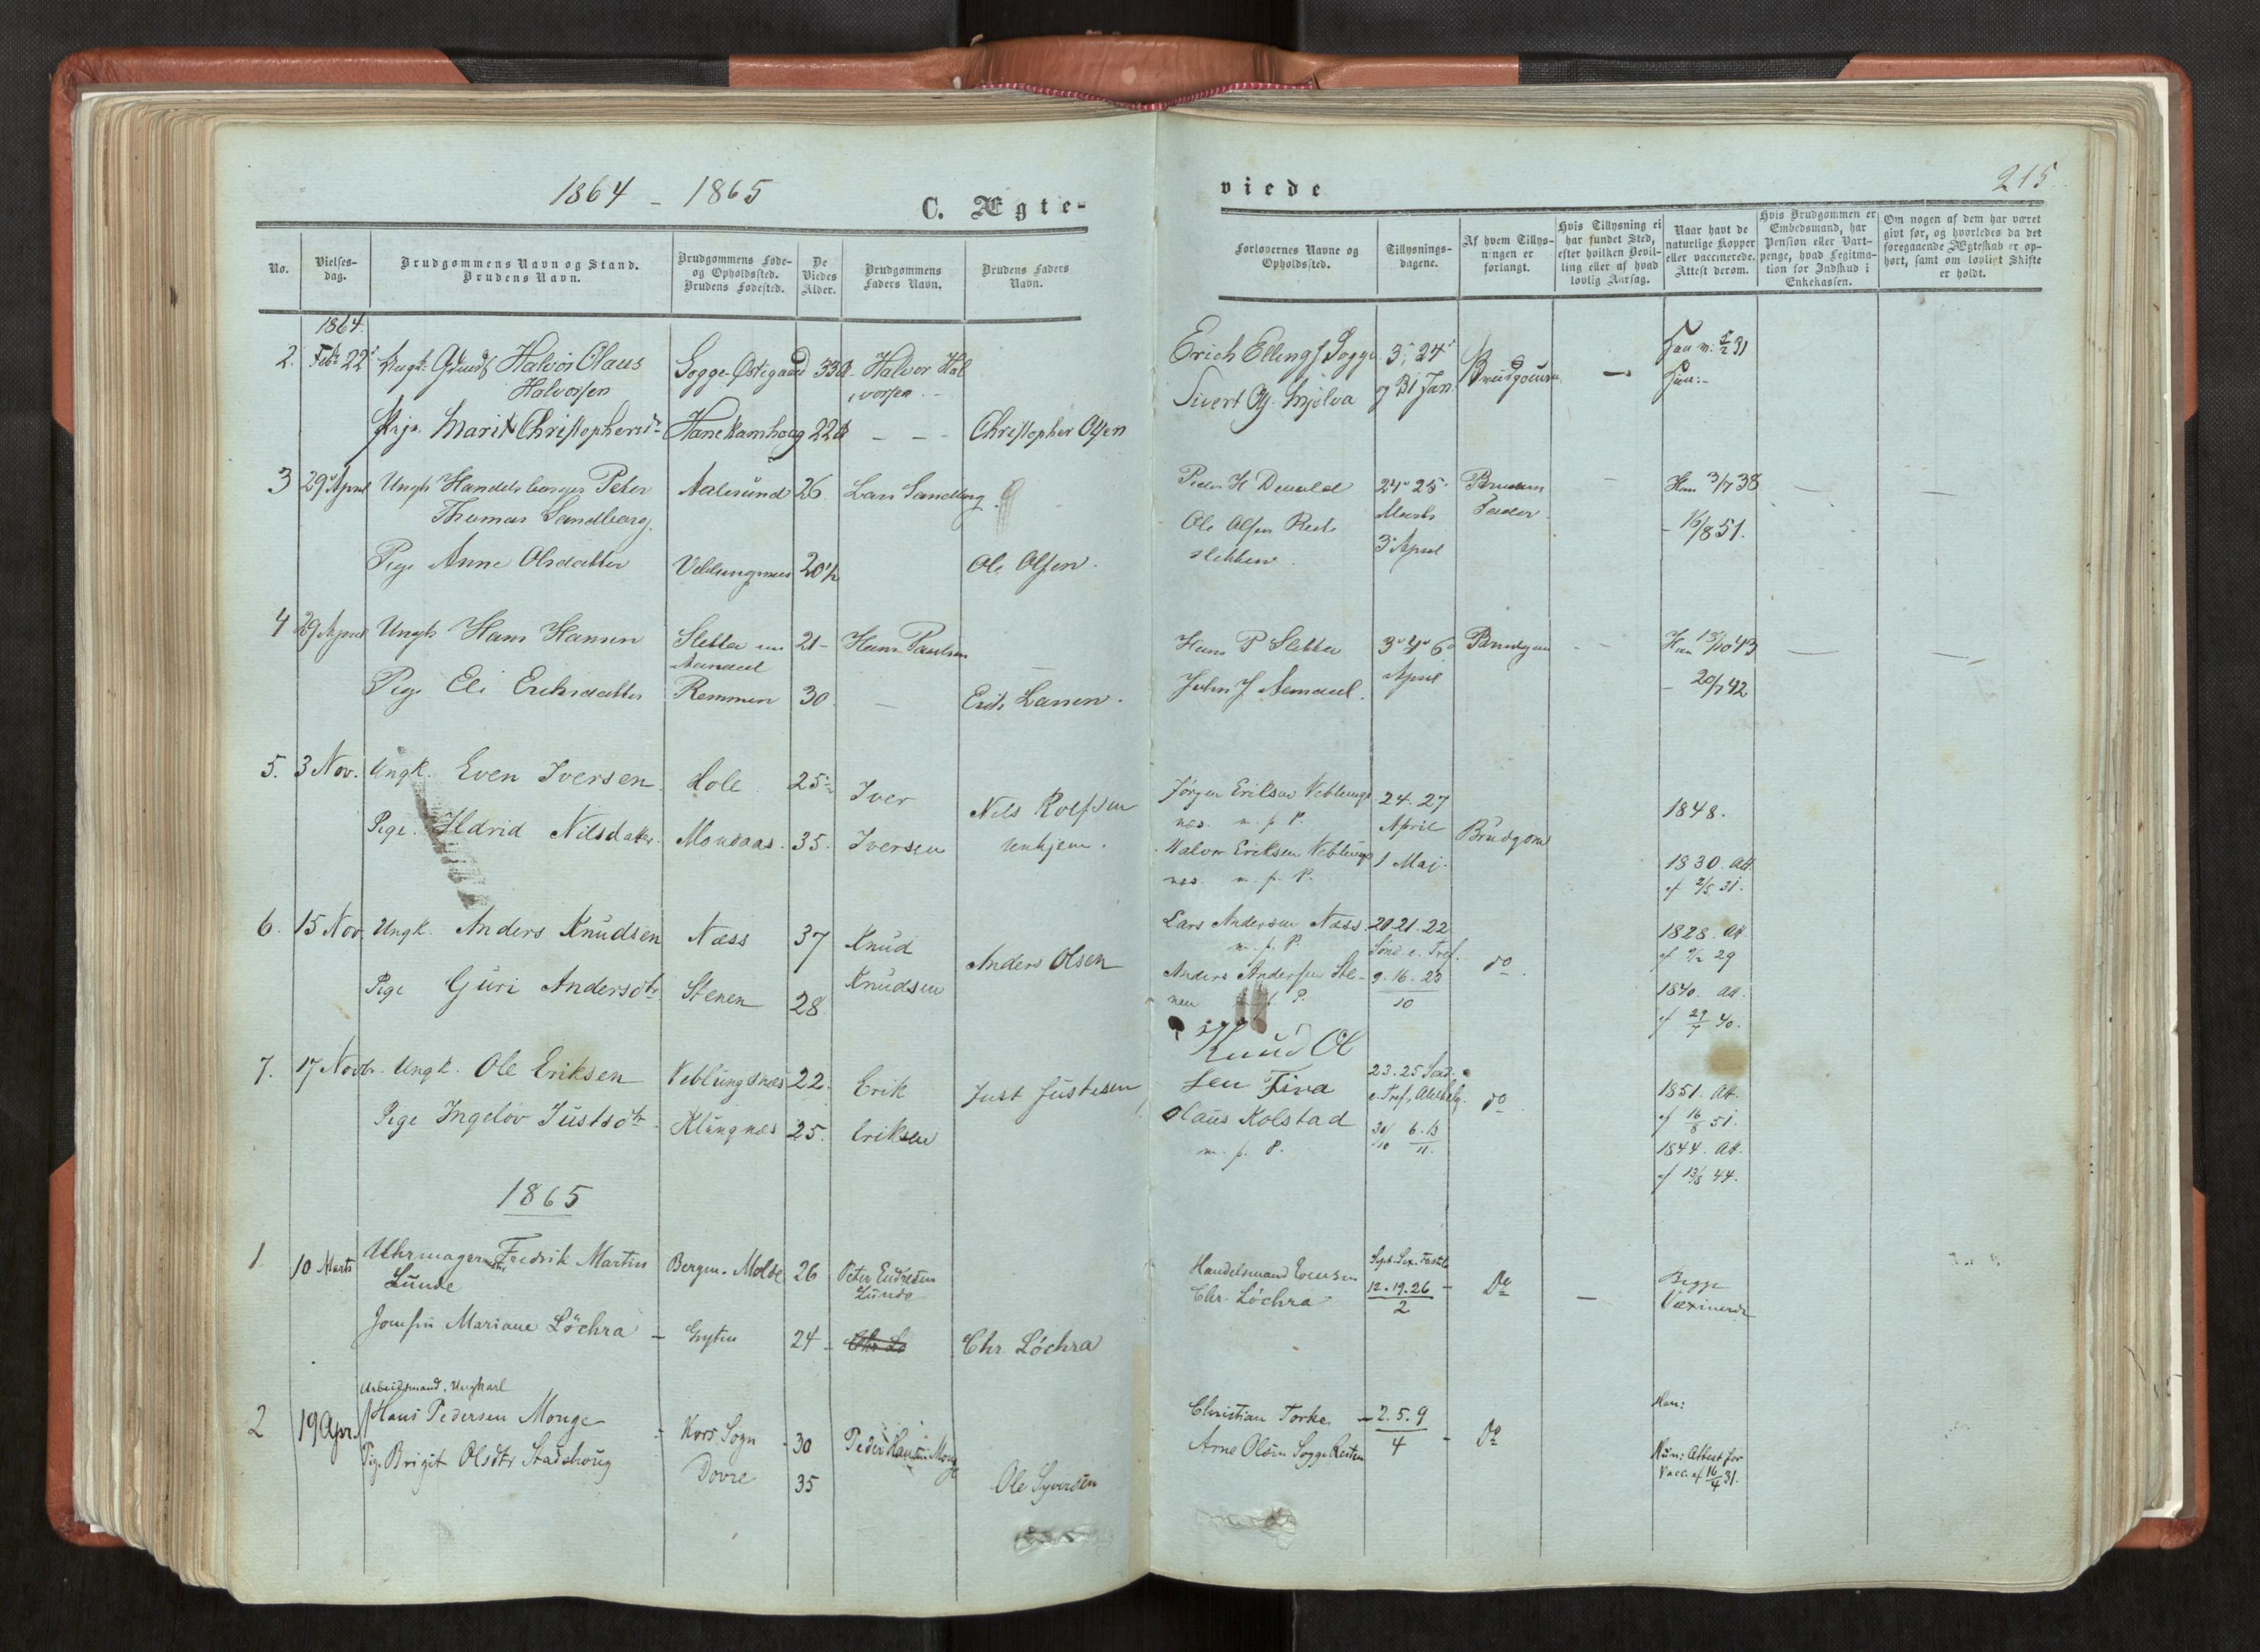 1864 - 1865
C. Ægte-
No.
Vielses-
dag.
Brudgommens Navn og Stand.
Brudens Navn.
Brudgommens Føde-
og Opholdssted.
Brudens Fødested.
De
Viedes
Alder.
Brudgommens
Faders Navn.
Brudens Faders
Navn.
1864.
2. Febr 22 Halvor Olaus Sogge Østigaard 33 Halvor Hal
Halvorsen vorsen
Marit Christophersdr Hanekamhoug 22 - - - Christopher Olsen
3 29 April Ungk Handelsborger Peter Aalesund 26. Lars Sandberg
Thomas Sandberg.
Pige Anne Olsdatter Veblungsnes 20½ Ole Olsen.
4 29 April Ungk Hans Hansen Sletta 21- Hans Paulsen
Pige Eli Eriksdatter Remmen 30 - Erik Larsen.
5. 3 Nov. Ungk. Even Iversen. Hole. 25 Iver Nils Rolfsen
Pige. Ildrid Nilsdatter. Monsaas. 35. Iversen Unhjem.
6. 15 Nov. Ungk. Anders Knudsen Næss 37 Knud Anders Olsen
Pige Guri Andersdtr. Stenen 28 Knudsen
7. 17 Novbr. Ungk. Ole Eriksen Veblungsnæs 22. Erik Just Justesen
Pige Ingelov Justsdtr. Klungnæs 25. Eriksen
1865
1 10 Marts Uhrmager Fredrik Martin Bergen. Molde 26 Peter Endresen
Lunde Lunde
Jomfru Mariane Löchra - Gryten 24 - Chr. Löchra
Arbeidsmand. Ungkarl
2 19 Apr. Hans Pedersen Monge - Kors Sogn - 30 Peder Hansen Monge
Pige Brigit Olsdtr Stadshoug Dovre 35 Ole Syversen
viede
215.
Forlovernes Navne og
Opholdssted.
Tillysnings-
dagene.
Af hvem Tillys-
ningen er
forlangt.
Hvis Tillysning ei
har fundet Sted,
efter hvilken Bevil-
ling eller af hvad
lovlig Aarsag.
Naar havt de
naturlige Kopper
eller vaccinerede.
Attest derom.
Hvis Brudgommen er
Embedsmand, har
Pension eller Vart-
penge, hvad Legitima-
tion for Indskud i
Enkekassen.
Om nogen af dem har været
givt før, og hvorledes da det
foregaaende Ægteskab er op-
hørt, samt om lovligt Skifte
er holdt.
Erich Ellings Sogge 3, 24 Brudgommen -
Sivert Mjelva og 31 Jan.
Peder H Devold 24 25 Brudens - Han 3/7 38 - -
Ole Olsen Marts Fader. - 16/8 51.
sletten. 3 April
Hans P Sletta 3 4 6 Brudgom - Han 13/10 43 - -
John J Aandal April - 20/7 42
Jørgen Eriksen Veblungs 24. 27 1848.
næs. m. p. P. April Brudgom
Halvor Eriksen Veblungs 1 Mai. 1830. Att.
næs. m. p. P. af 2/5 31.
Lars Andersen Næss. 20 21. 22 1828. Att.
m. p. P. Sönd e. Tref. do.
Anders Andersen Ste- 9. 16. 23 1840. Att.
nen m. p. P. 10 af 29/7 40.
Knud Ol
sen Fiva 23. 25 Sönd. 1851. Att.
Olaus Kolstad 30/10 6. 13/11 do. af 16/8 51.
m. p. P. 1844. Att.
af 13/8 44.
Handelsmand Evensen 12. 19. 26 - Do - Begge
Chr. Löchra 2 Vaxinerede
Christian Torke - 2. 5. 9 Han:
Arne Olsen Sogge 4 - Do Hun: Attest for
Vacc. af 16/4 31.